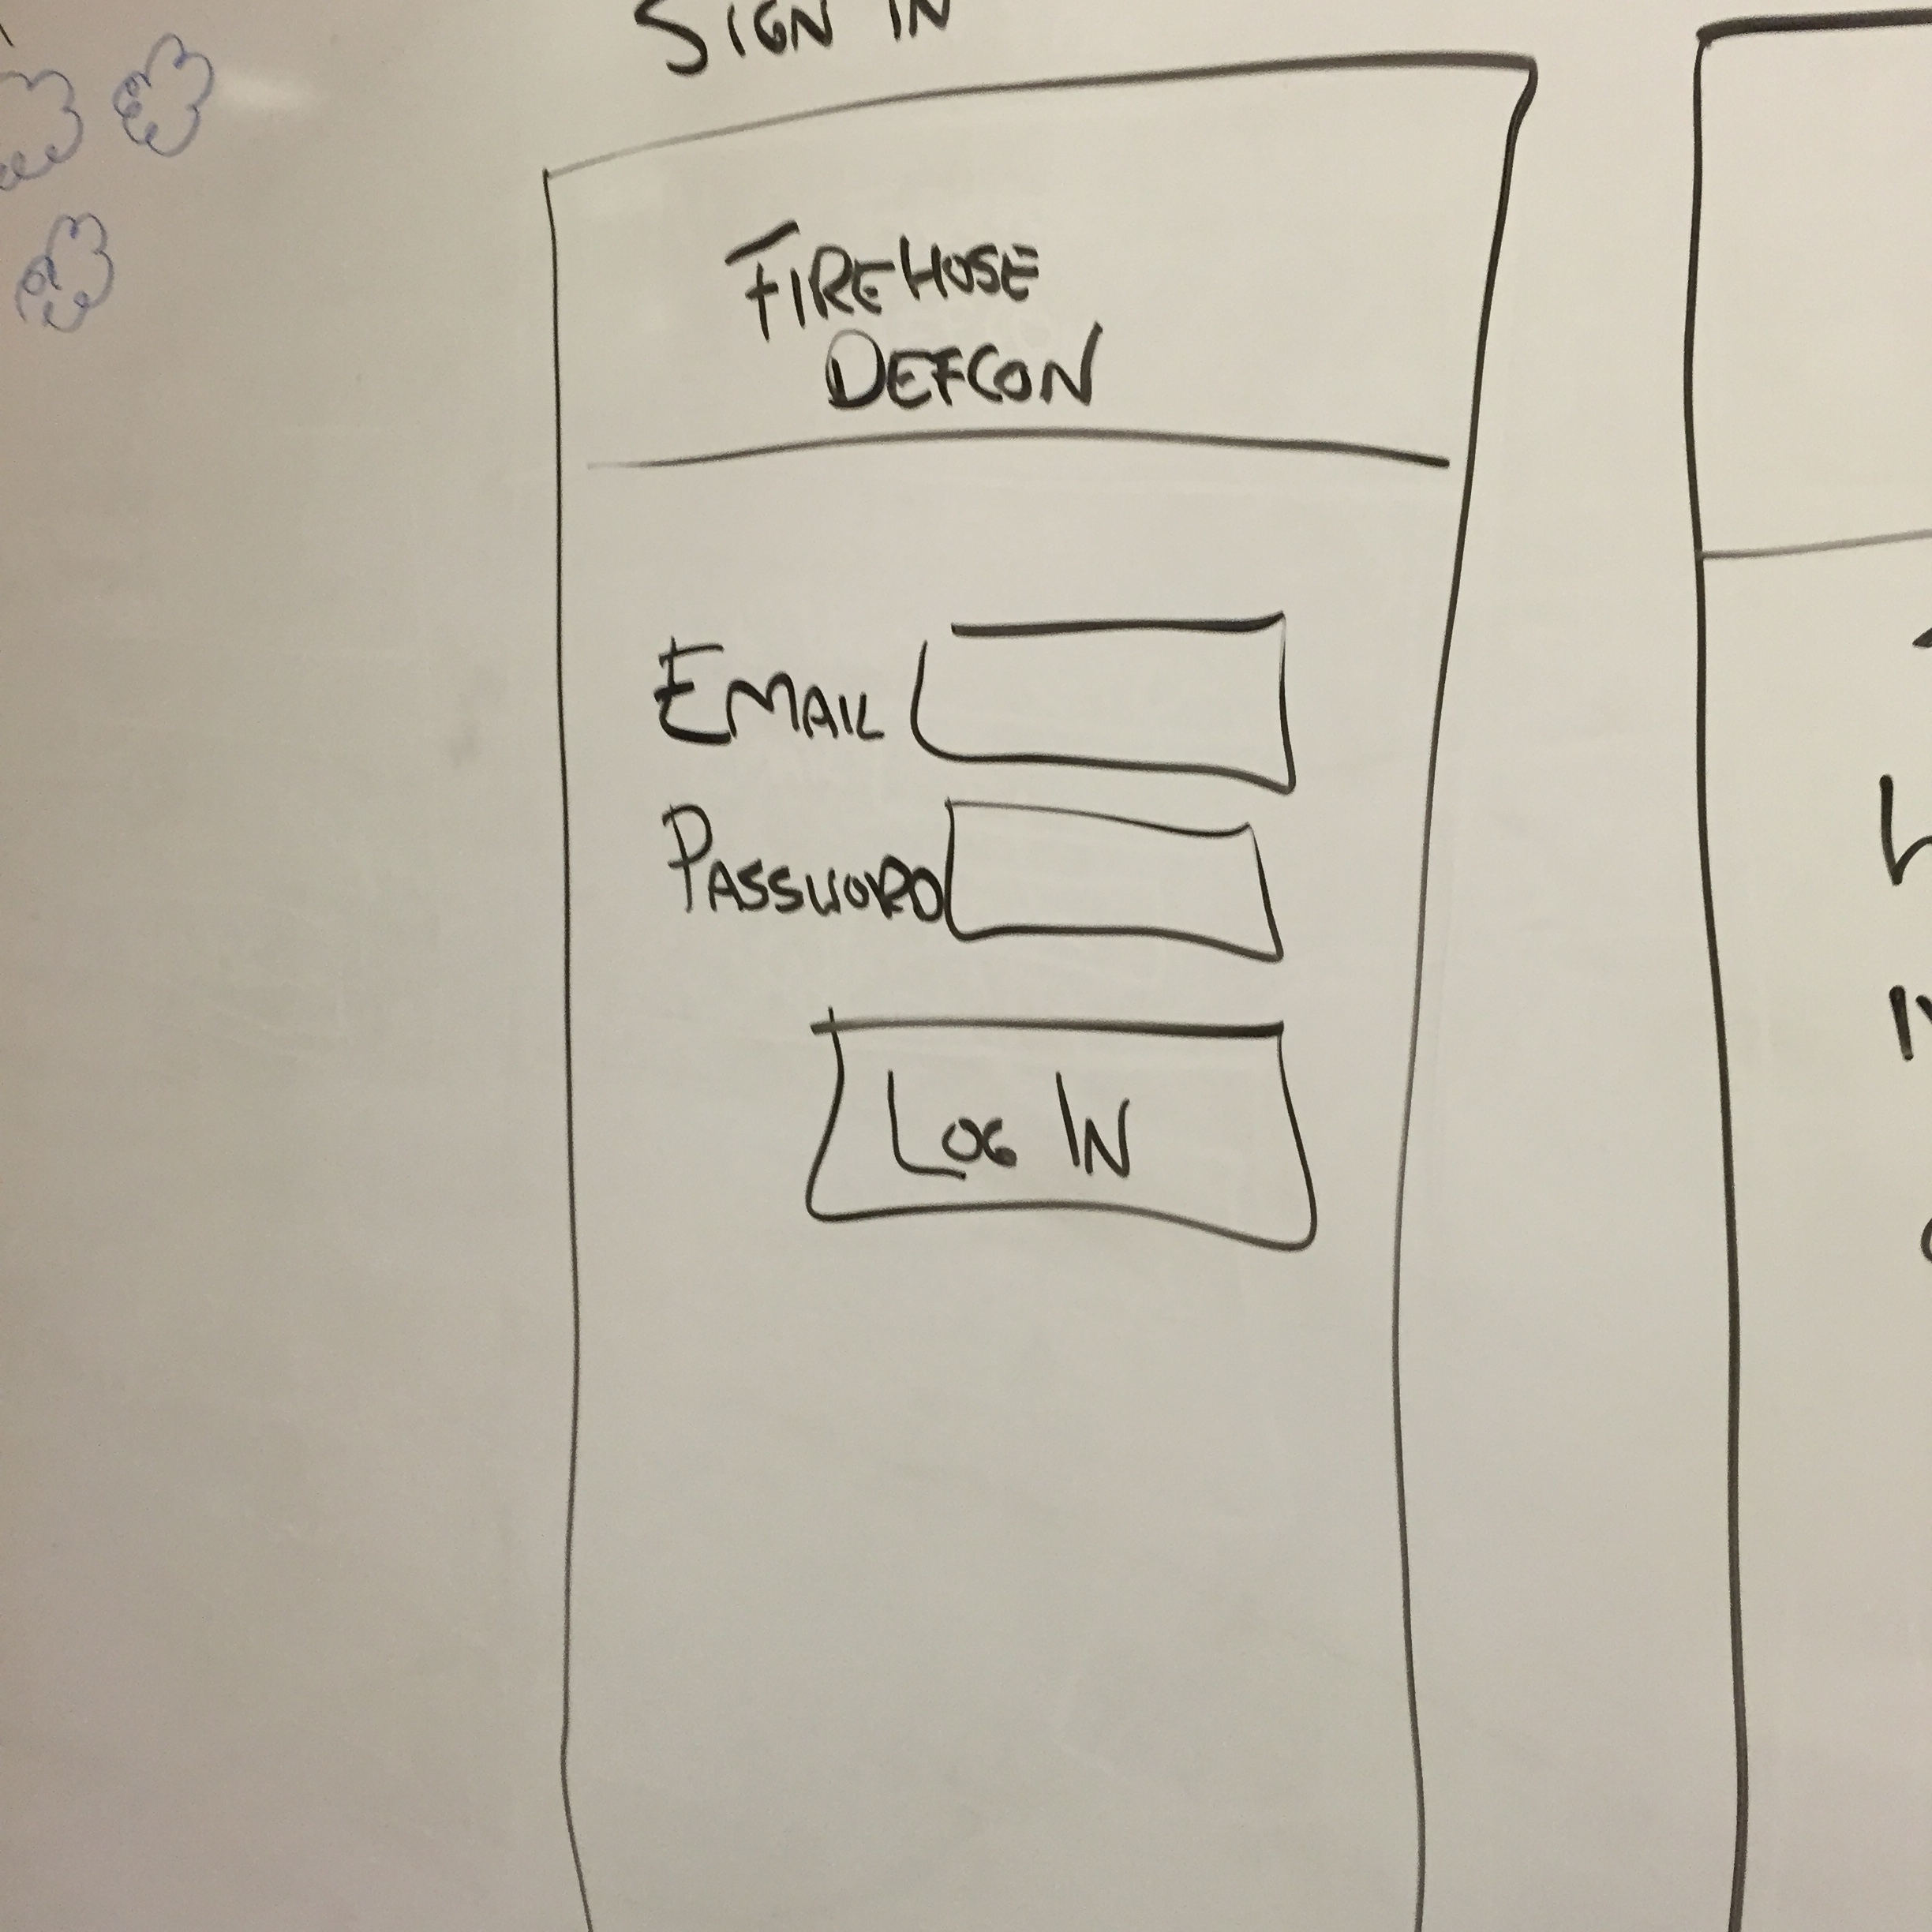 SIGN IN
FIREHOSE
DEFCON
EMAIL
PASSWORD
LOG IN